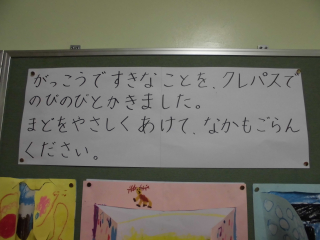 がっこうですきなことを、クレパスで
のびのびとかきました。
まどをやさしくあけて、なかもごらん
ください。